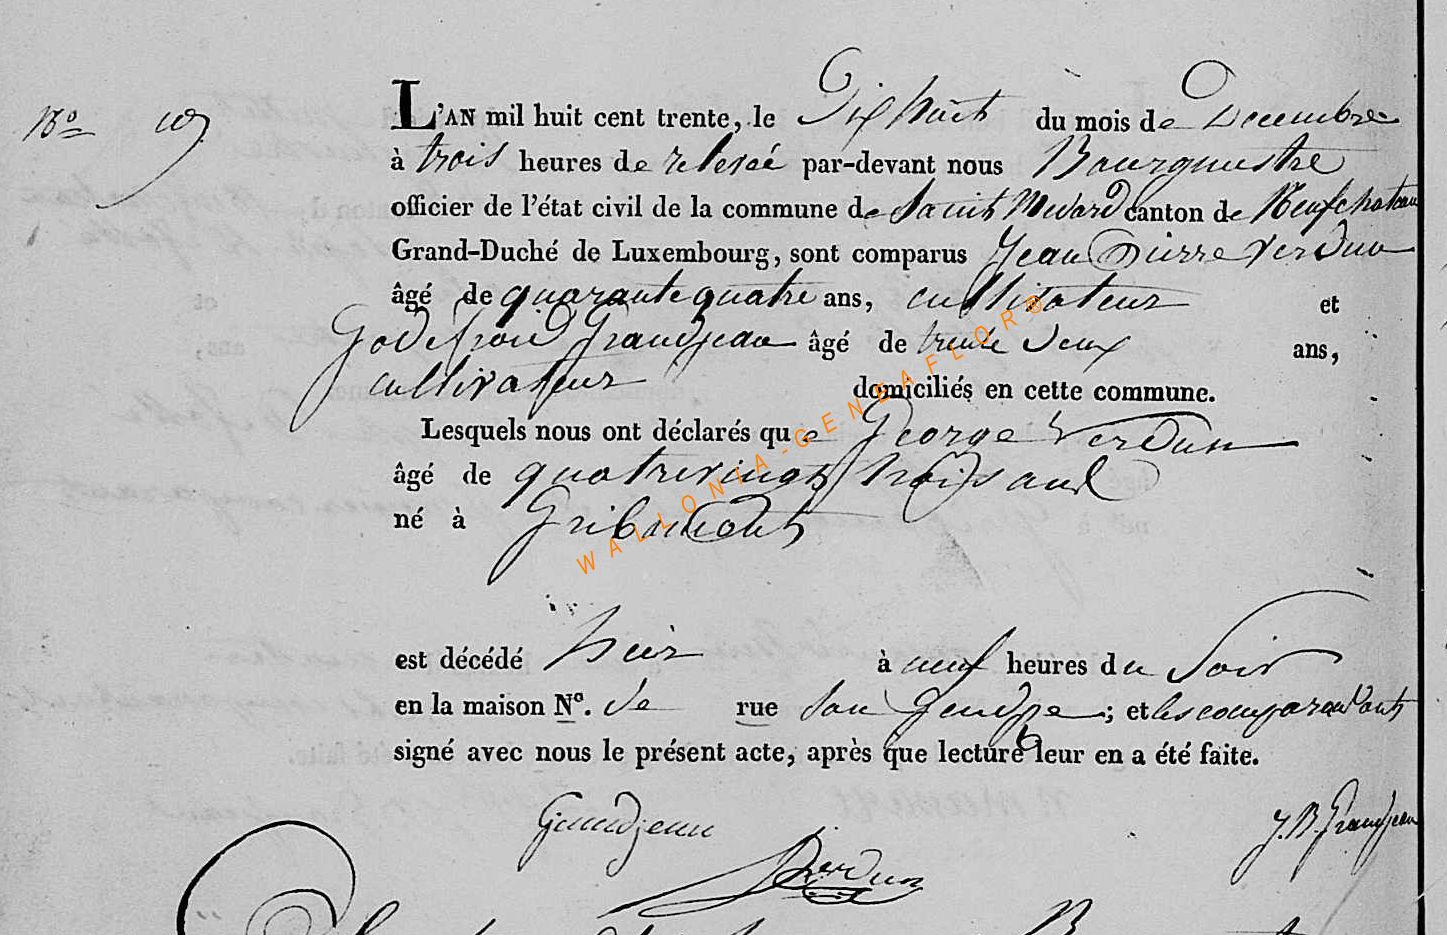 N° 19
L'AN mil huit cent trente, le Dix huit du mois de Decembre
à trois heures de relevée par-devant nous Bourgmestre
officier de l'état civil de la commune de Saint Medard canton de Neufchateau
Grand-Duché de Luxembourg, sont comparus Jean Pierre Verdun
âgé de quarante quatre ans, cultivateur et
Godefroid Grandjean âgé de trente deux ans,
cultivateur domiciliés en cette commune.
Lesquels nous ont déclarés que George Verdun
âgé de quatrevingts trois ans
né à Gribomont
est décédé hier à neuf heures du Soir
en la maison N°. de rue son Gendre; et les comparans ont
signé avec nous le présent acte, après que lecture leur en a été faite.
Grandjean J. B. Grandjean
Verdun
WALLONIA-GENEAFLOR®